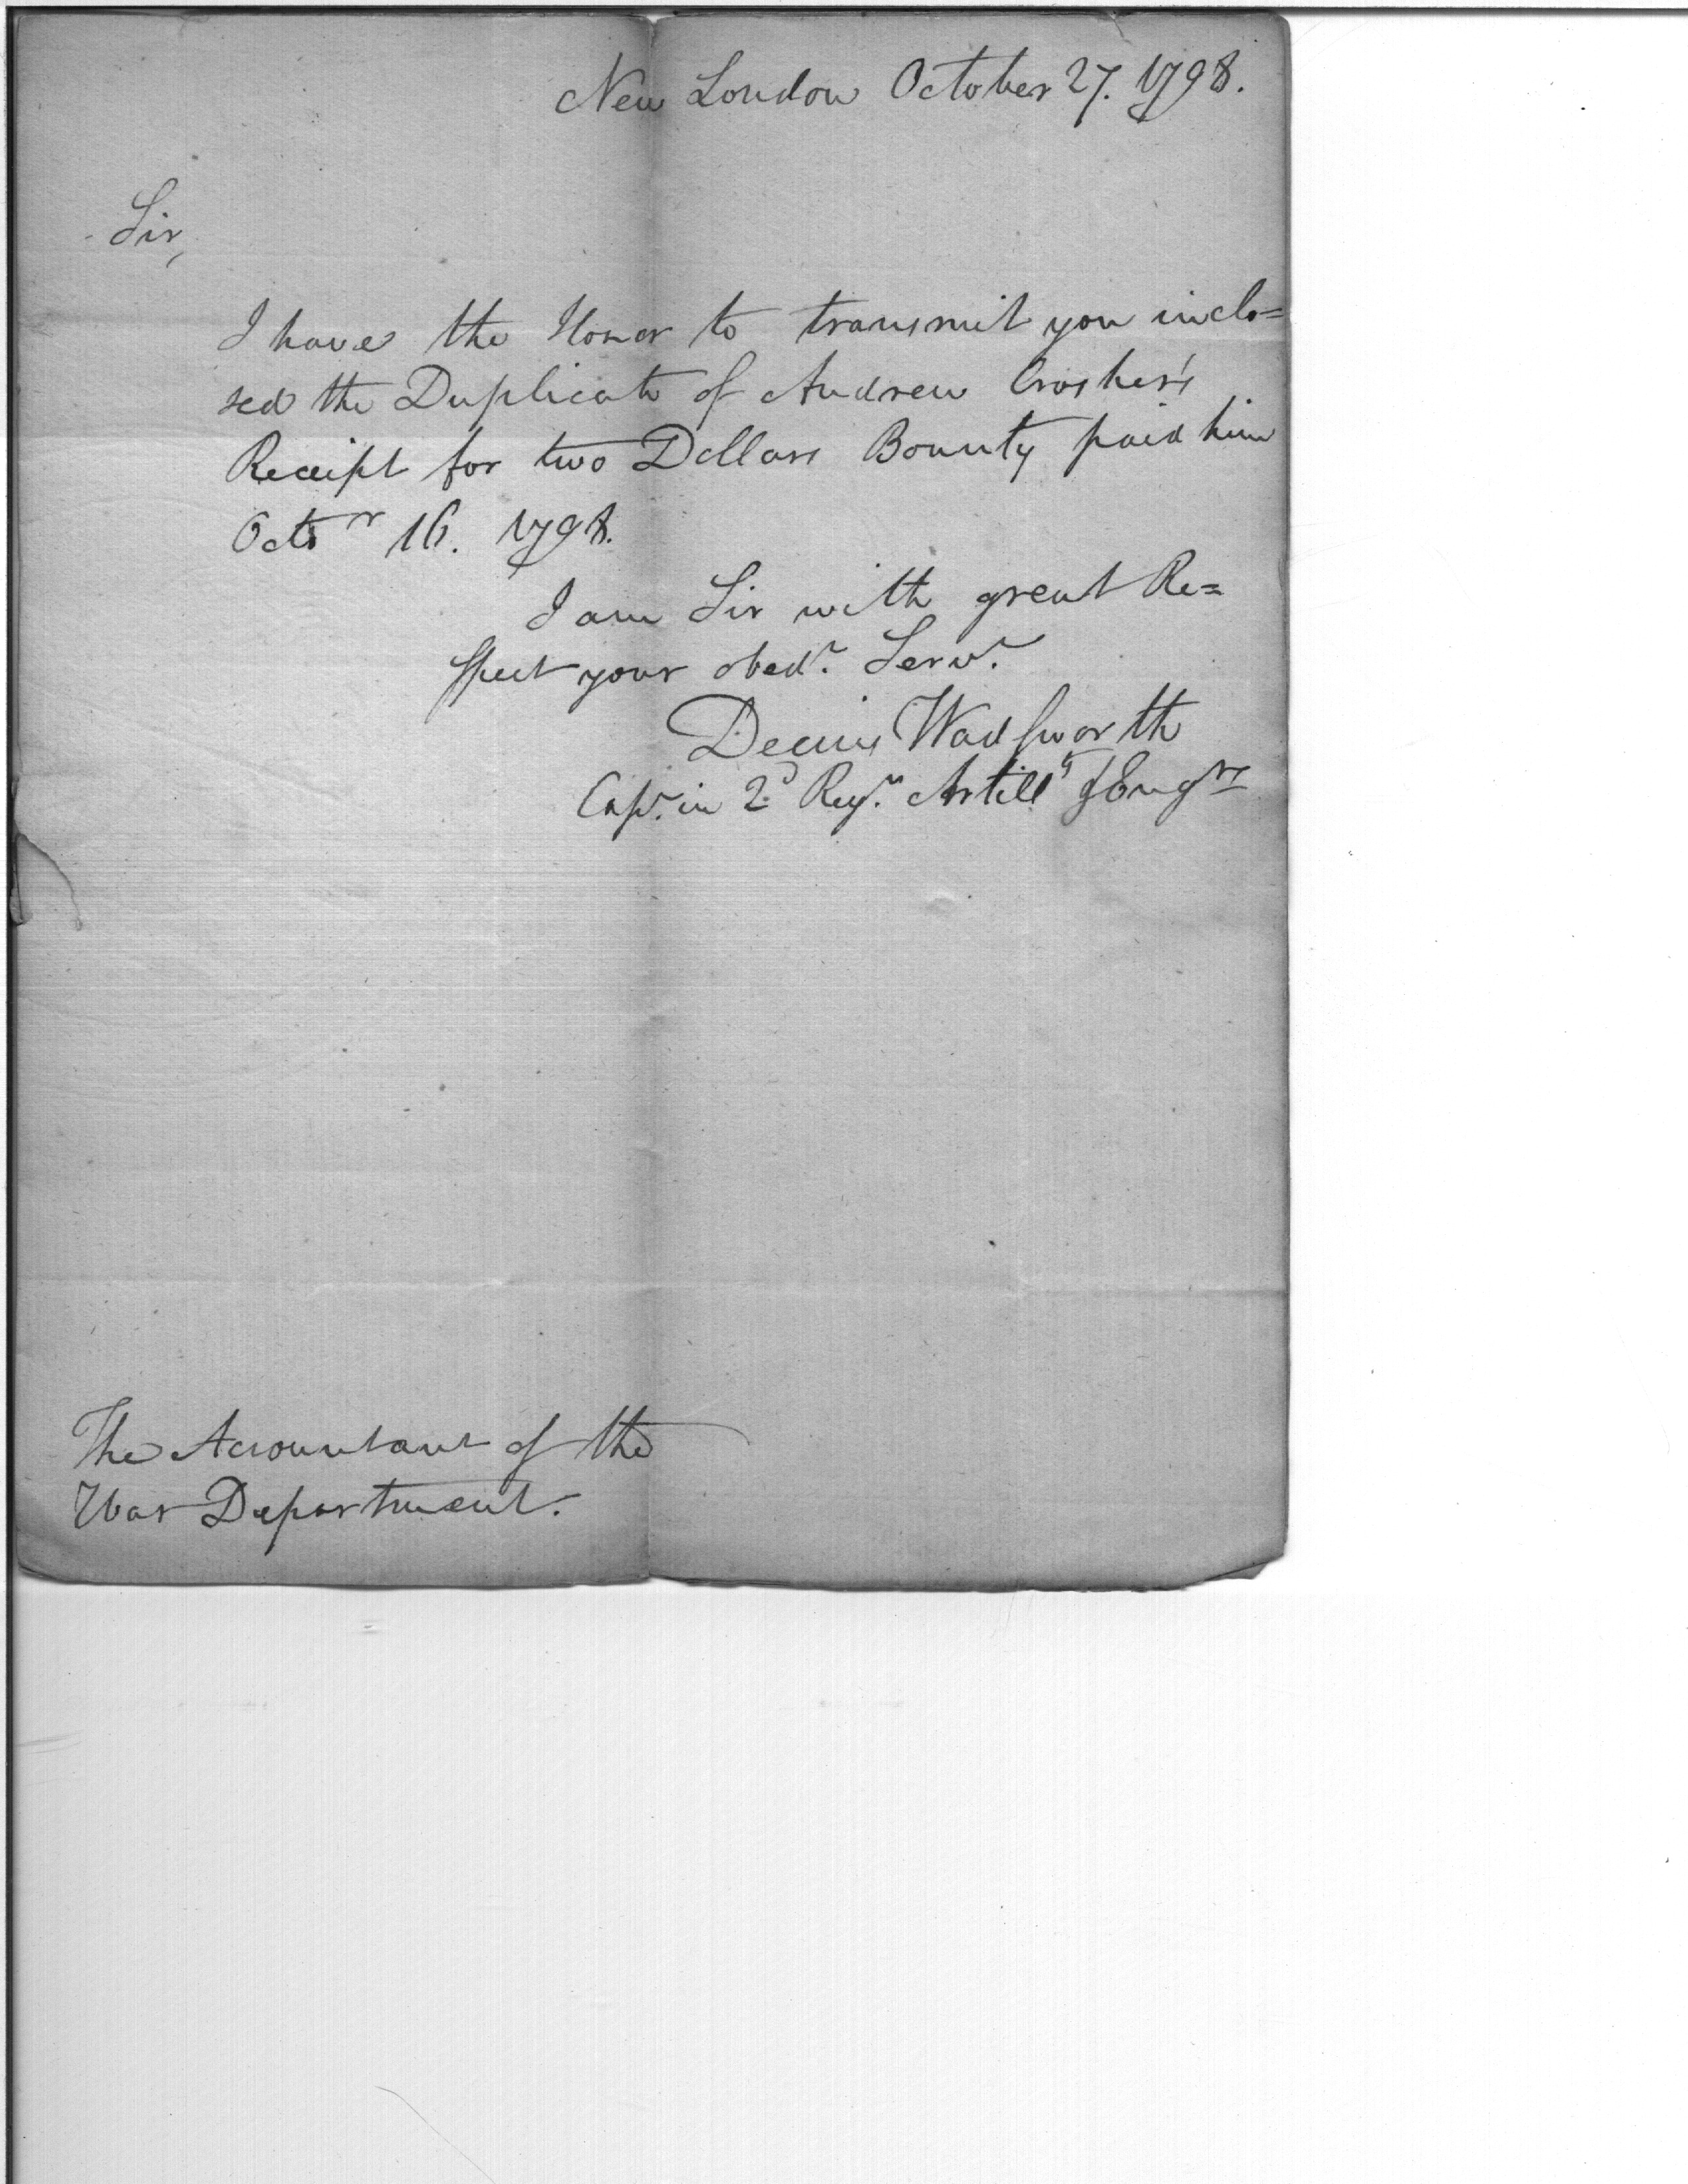 New London October 27. 1798.
Sir,
I have the Honor to transmit you inclo=
sed the Duplicate of Andrew Crosker's
Receipt for two Dollars Bounty paid him
Octor 16. 1798.
I am Sir with great Re=
spect your obedt. Servt.
Decius Wadsworth
Capt. in 2d Regt. Artilly & Engrs
The Accountant of the
War Department.